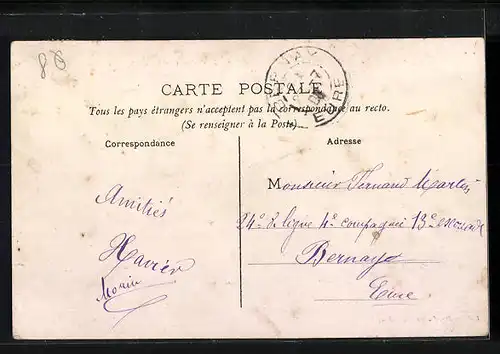 86
CARTE POSTALE
Tous les pays étrangers n'acceptent pas la correspondance au recto.
(Se renseigner à la Poste)
EURE
Correspondance
Adresse
Amitiés
Xavier
Morin
Monsieur Fernand
24e de ligne 4e compagnie 13e
Bernay
Eure